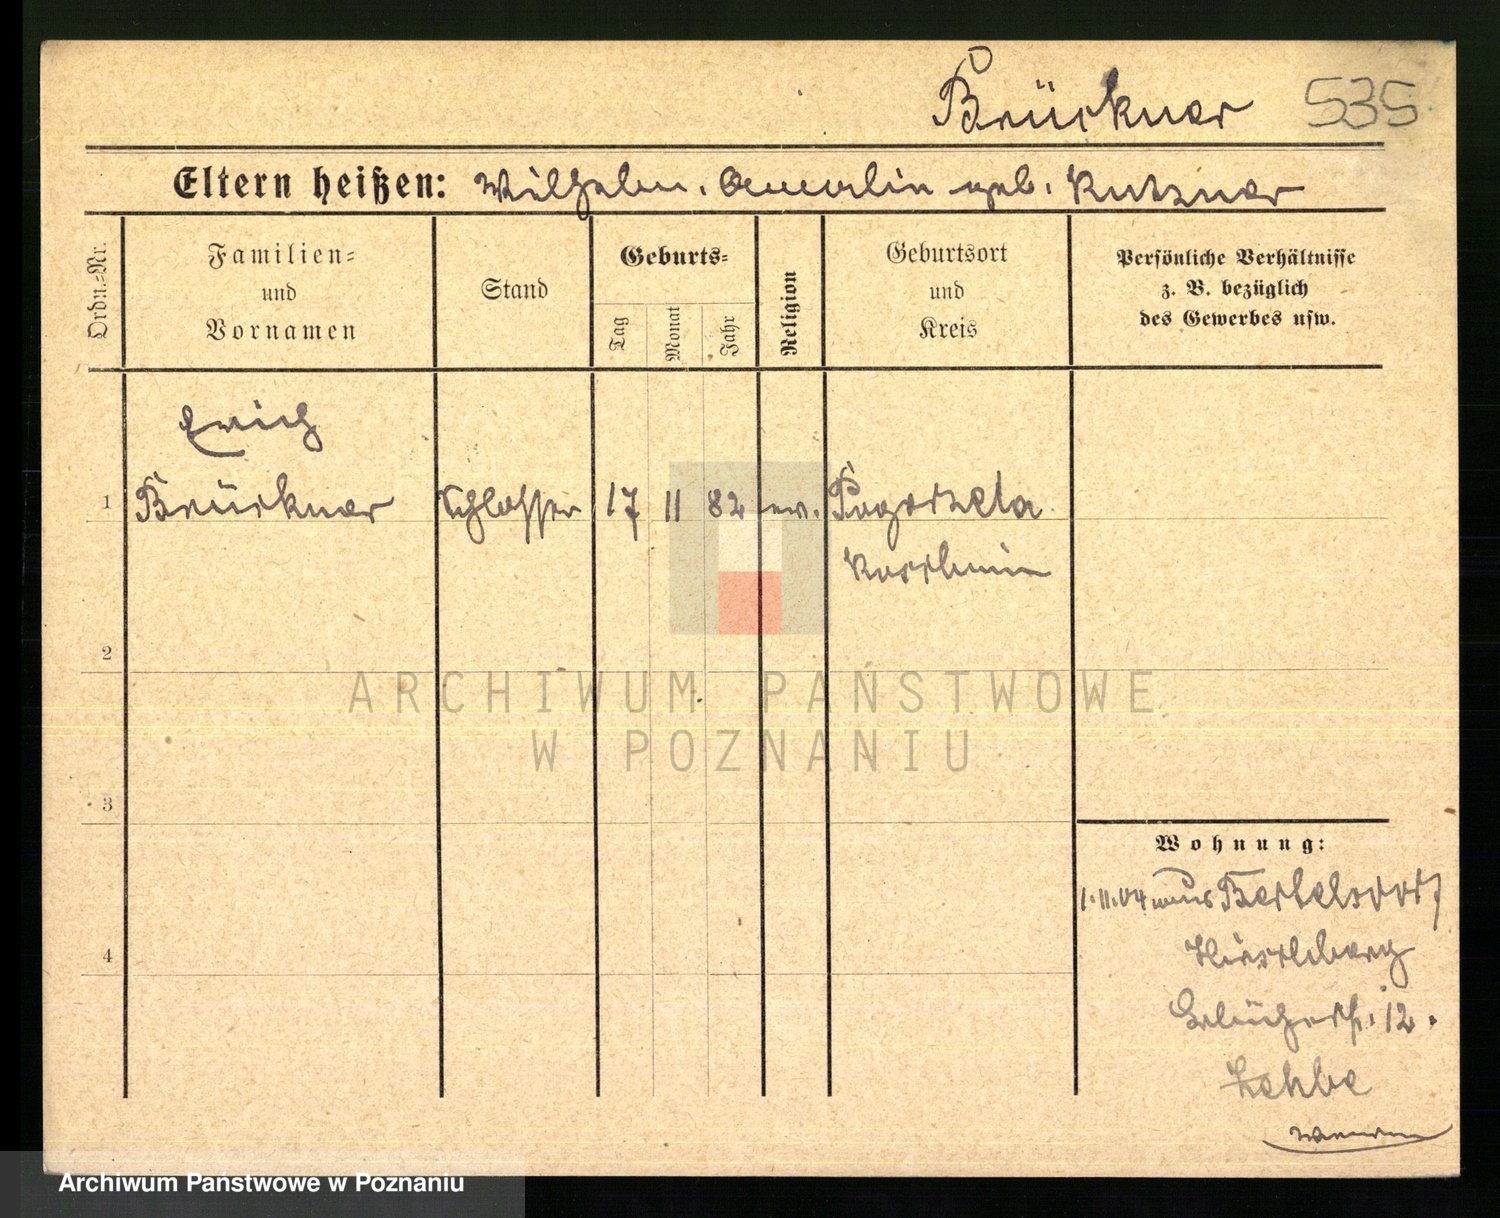 Brückner 535
Eltern heißen: Wilhelm. Amalin geb. Kutzner
Ordn.=Nr.
Familien=
und
Vornamen
Stand
Geburts=
Tag
Monat
Jahr
Religion
Geburtsort
und
Kreis
Persönliche Verhältnisse
z. B. bezüglich
des Gewerbes usw.
Erich
1 Brückner Schlosser 17 11 82 ev. Pogorzela
Koschmin
2
3
4
Wohnung:
1.11.04 aus Bertelsdorf
Hirschberg
Blücherstr. 12.
ARCHIWUM PAŃSTWOWE
W POZNANIU
Archiwum Państwowe w Poznaniu